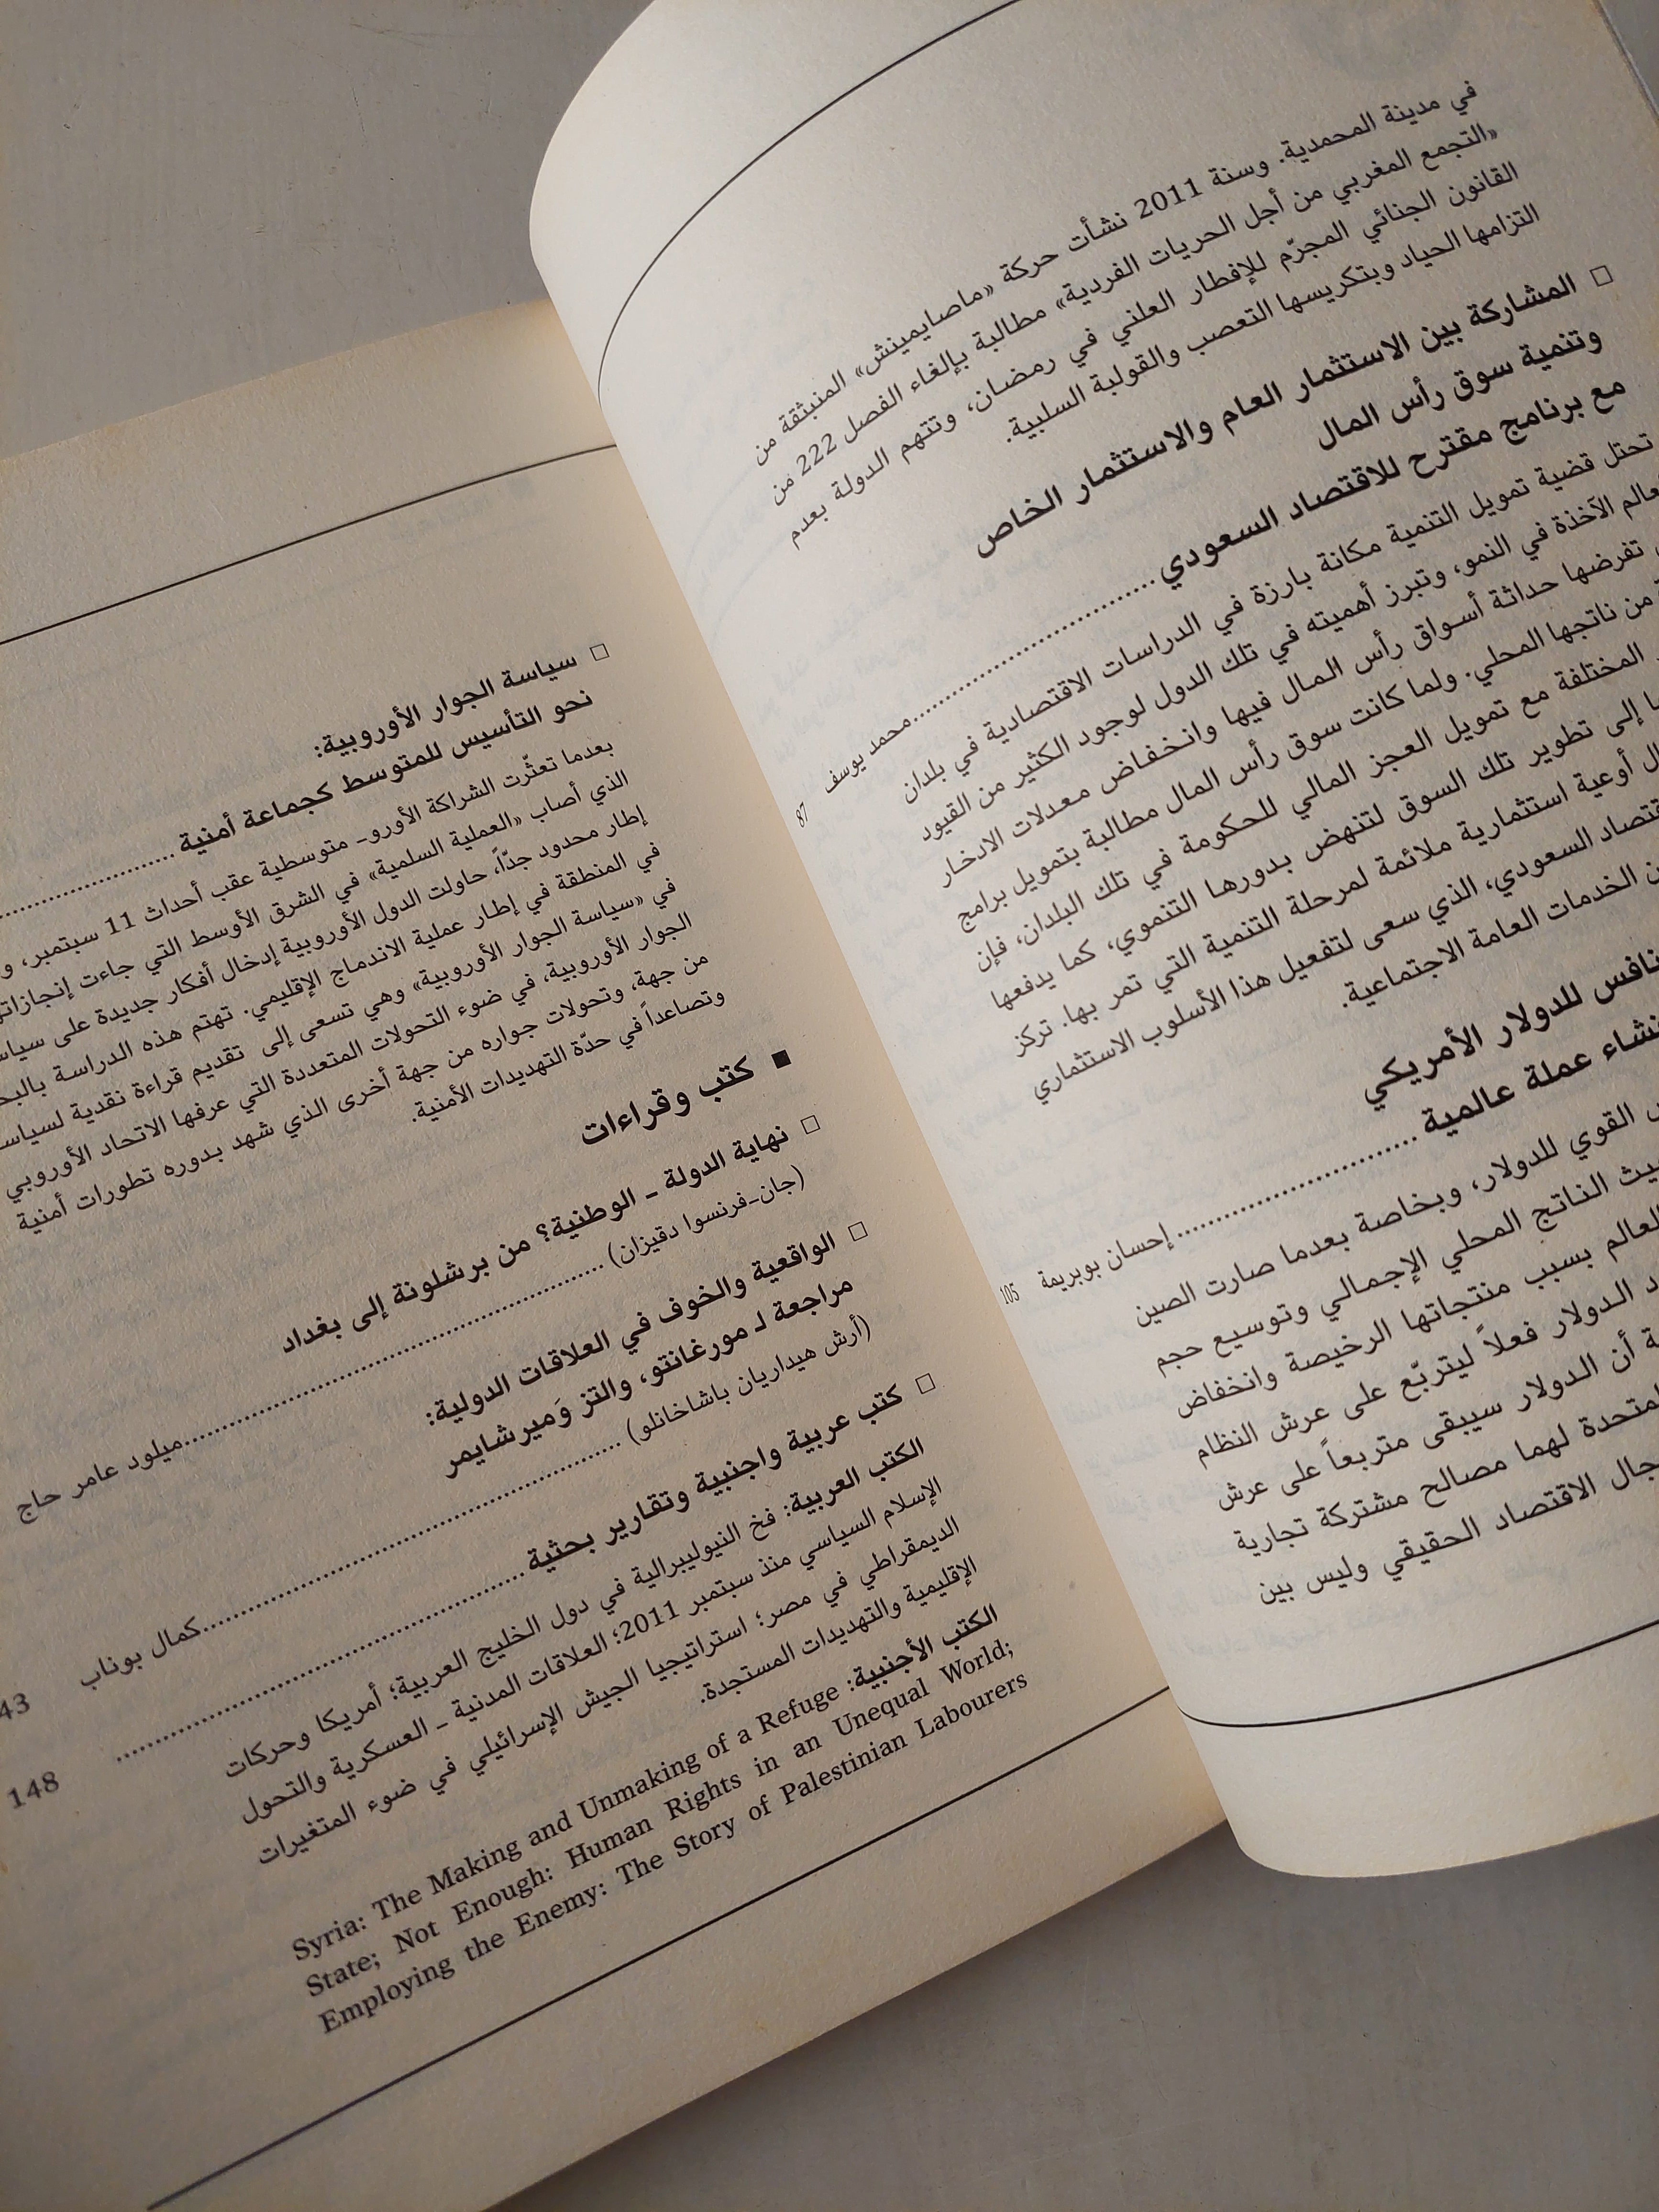 في مدينة المحمدية. وسنة 2011 نشأت حركة «ماصايمينش» المنبثقة من
«التجمع المغربي من أجل الحريات الفردية» مطالبة بإلغاء الفصل 222 من
القانون الجنائي المجرّم للإفطار العلني في رمضان، وتتهم الدولة بعدم
التزامها الحياد وبتكريسها التعصب والقولبة السلبية.
□ المشاركة بين الاستثمار العام والاستثمار الخاص
وتنمية سوق رأس المال
مع برنامج مقترح للاقتصاد السعودي ............ محمد يوسف 87
تحتل قضية تمويل التنمية مكانة بارزة في الدراسات الاقتصادية في بلدان
الآخذة في النمو، وتبرز أهميته في تلك الدول لوجود الكثير من القيود
تفرضها حداثة أسواق رأس المال فيها وانخفاض معدلات الادخار
من ناتجها المحلي. ولما كانت سوق رأس المال مطالبة بتمويل برامج
المختلفة مع تمويل العجز المالي للحكومة في تلك البلدان، فإن
إلى تطوير تلك السوق لتنهض بدورها التنموي، كما يدفعها
أوعية استثمارية ملائمة لمرحلة التنمية التي تمر بها. تركز
السعودي، الذي سعى لتفعيل هذا الأسلوب الاستثماري
الخدمات العامة الاجتماعية.
للدولار الأمريكي
عملة عالمية ............ إحسان بوبريمة 105
القوي للدولار، وبخاصة بعدما صارت الصين
الناتج المحلي الإجمالي وتوسيع حجم
العالم بسبب منتجاتها الرخيصة وانخفاض
الدولار فعلاً ليتربّع على عرش النظام
أن الدولار سيبقى متربعاً على عرش
لهما مصالح مشتركة تجارية
الاقتصاد الحقيقي وليس بين
□ سياسة الجوار الأوروبية:
نحو التأسيس للمتوسط كجماعة أمنية ............
بعدما تعثّرت الشراكة الأورو- متوسطية عقب أحداث 11 سبتمبر،
الذي أصاب «العملية السلمية» في الشرق الأوسط التي جاءت
إطار محدود جدّاً، حاولت الدول الأوروبية إدخال أفكار جديدة على
في المنطقة في إطار عملية الاندماج الإقليمي. تهتم هذه الدراسة
في «سياسة الجوار الأوروبية» وهي تسعى إلى تقديم قراءة نقدية
الجوار الأوروبية، في ضوء التحولات المتعددة التي عرفها الاتحاد الأوروبي
من جهة، وتحولات جواره من جهة أخرى الذي شهد بدوره تطورات أمنية
وتصاعداً في حدّة التهديدات الأمنية.
■ كتب وقراءات
□ نهاية الدولة ـ الوطنية؟ من برشلونة إلى بغداد
(جان-فرنسوا دقيزان) ............ ميلود عامر حاج
□ الواقعية والخوف في العلاقات الدولية:
مراجعة لـ مورغانتو، والتز وَميرشايمر
(أرش هيداريان باشاخانلو) ............ كمال بوناب 43
□ كتب عربية واجنبية وتقارير بحثية ............ 148
الكتب العربية: فخ النيوليبرالية في دول الخليج العربية؛ أمريكا وحركات
الإسلام السياسي منذ سبتمبر 2011؛ العلاقات المدنية ـ العسكرية والتحول
الديمقراطي في مصر؛ استراتيجيا الجيش الإسرائيلي في ضوء المتغيرات
الإقليمية والتهديدات المستجدة.
الكتب الأجنبية: Syria: The Making and Unmaking of a Refuge
State; Not Enough: Human Rights in an Unequal World;
Employing the Enemy: The Story of Palestinian Labourers